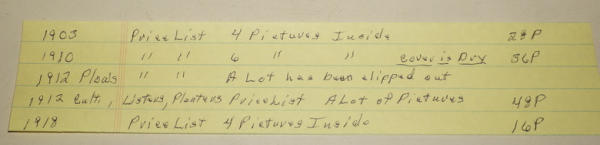 1903 Price List 4 Pictures Inside 28P
1910 " " 6 " " Cover is Dry 56P
1912 Plows " " A Lot has been clipped out
1912 Cult, Listers, Planters Price List A Lot of Pictures 48P
1918 Price List 4 Pictures Inside 16P